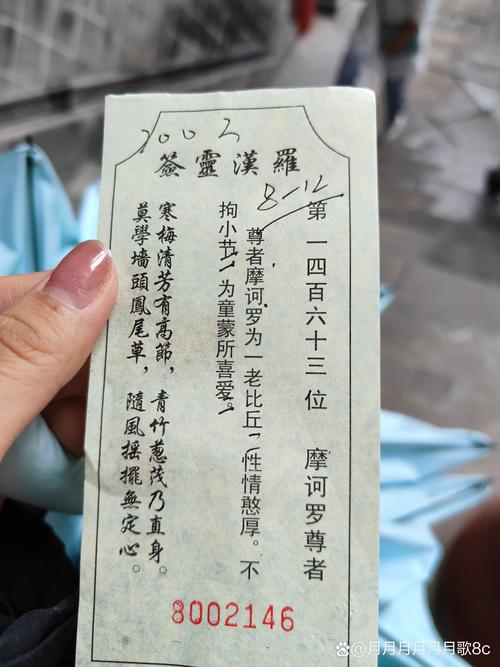 羅漢靈簽
8-12
第一四百六十三位 摩诃罗尊者
尊者摩诃罗为一老比丘,性情憨厚。不
拘小节,为童蒙所喜爱。
寒梅清芳有高節,青竹蔥茂乃直身。
莫學墙頭鳳尾草,隨風摇擺無定心。
8002146
@月月月月月月歌8c